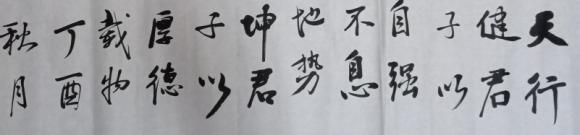 天行
健君
子以
自强
不息
地势
坤君
子以
厚德
载物
丁酉
秋月